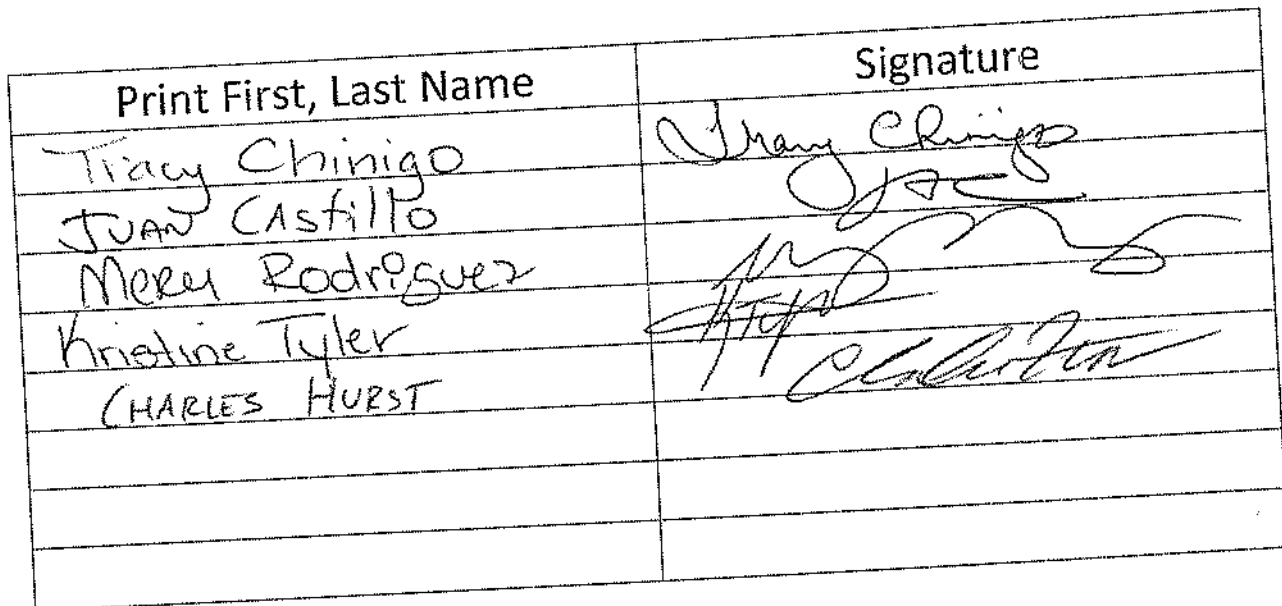 Print First, Last Name Signature
Tracy Chinigo Tracy Chinigo
JUAN CAstillo
Mery Rodriguez
Kristine Tyler KTyl
CHARLES HURST